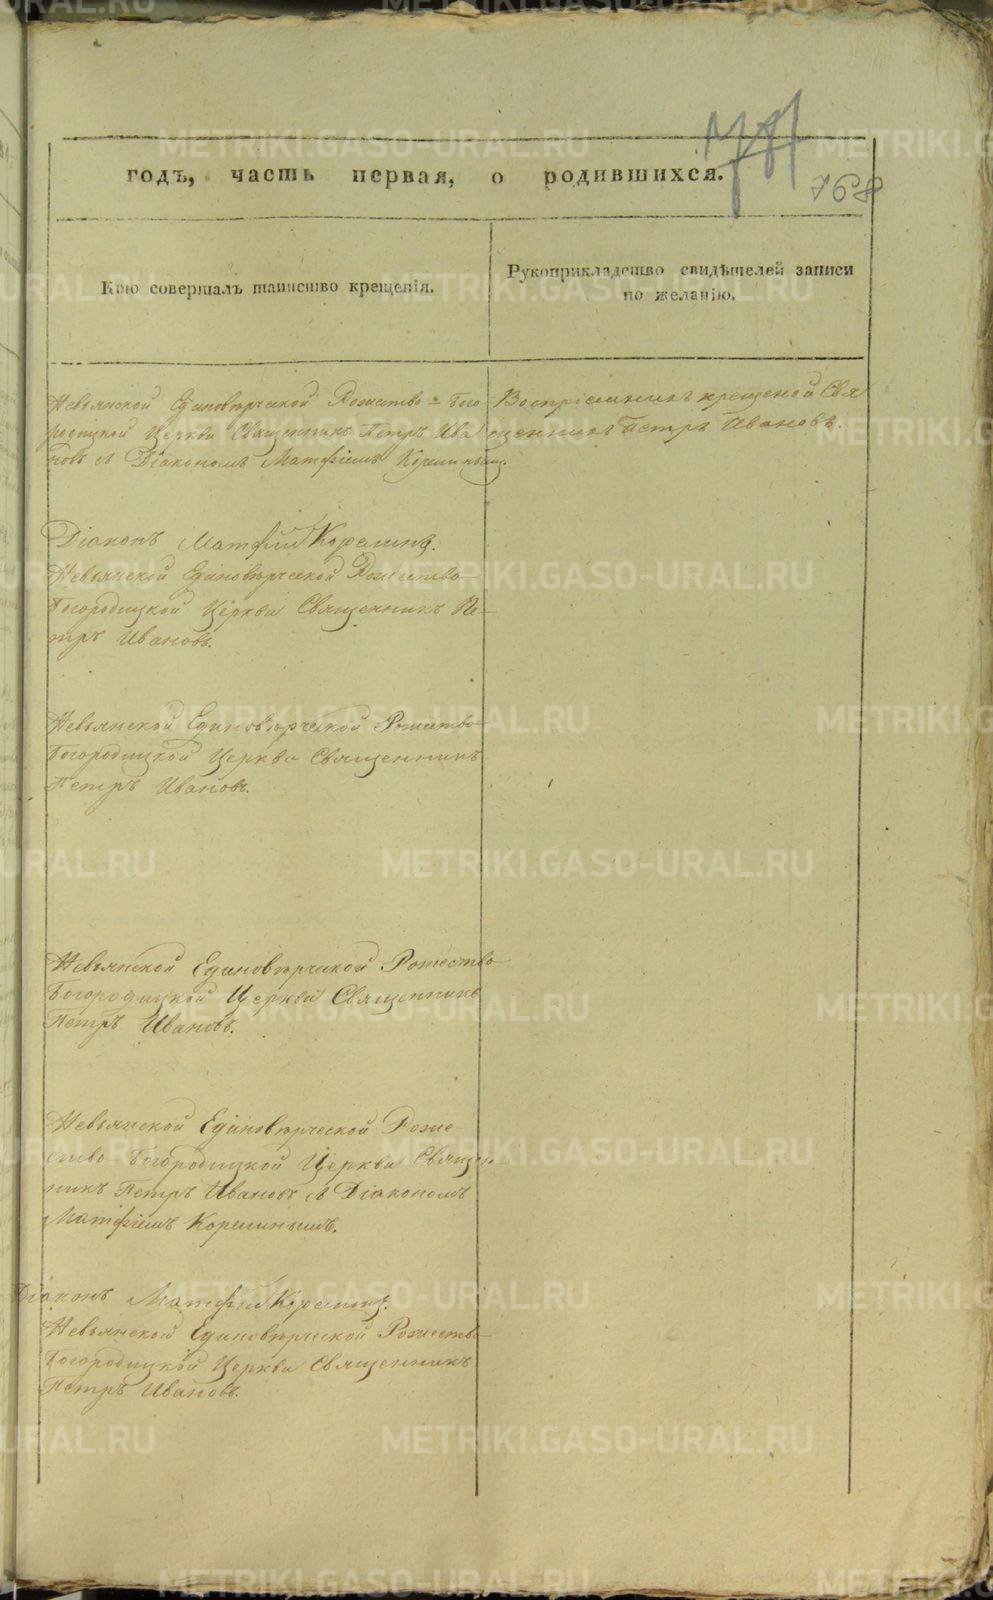 годъ, часть первая, о родившихся.
768
Кто совершалъ таинство крещенія.
Рукоприкладство свидѣтелей записи
по желанію.
Невьянской Единовѣрческой Рожество-Бого
родицкой Церкви Священникъ Петръ Ива
новъ съ Діакономъ Матфіемъ
Воспріемникъ крещеной Свя
щенникъ Петръ Ивановъ.
Діаконъ Матфій Корелинъ.
Невьянской Единовѣрческой Рожество
Богородицкой Церкви Священникъ Пе-
тръ Ивановъ.
Невьянской Единовѣрческой Рожество
Богородицкой Церкви Священникъ
Петръ Ивановъ.
Невьянской Единовѣрческой Рожество
Богородицкой Церкви Священникъ
Петръ Ивановъ.
Невьянской Единовѣрческой Роже-
ство-Богородицкой Церкви Священ-
никъ Петръ Ивановъ съ Діакономъ
Матфіемъ Корелинымъ.
Діаконъ Матфій Корелинъ.
Невьянской Единовѣрческой Рожество-
Богородицкой Церкви Священникъ
Петръ Ивановъ.
METRIKI.GASO-URAL.RU